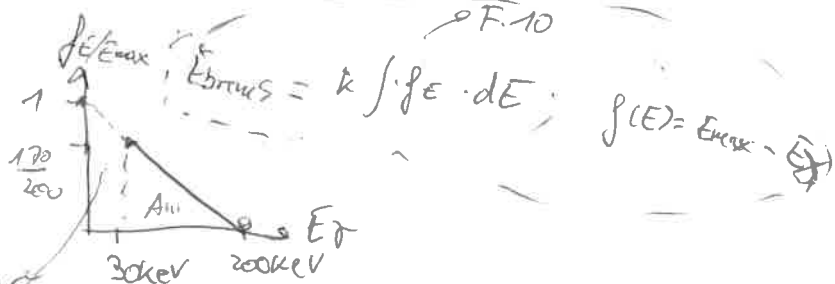 F.10
f E/Emax
Ė Brems = k ∫ · f E · dE
f(E) = Emax - Eγ
1
170/200
A
Eγ
30keV 200keV